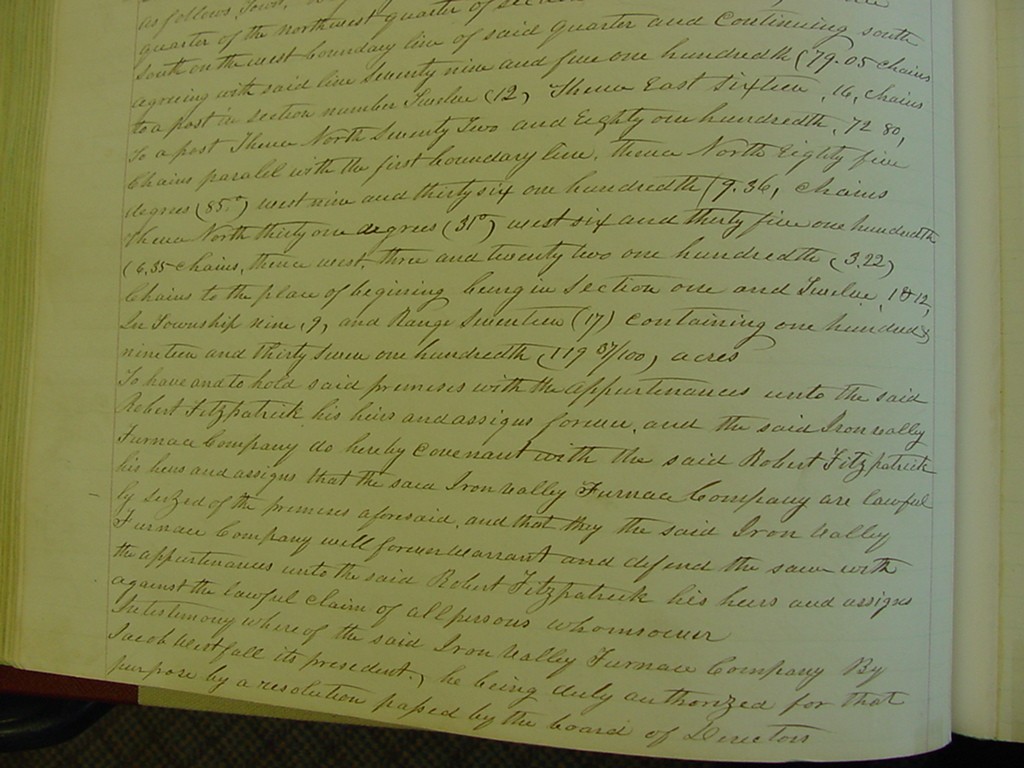 as follows, Towit,
quarter of the northwest quarter of section
south on the west boundary line of said quarter and Continuing south
agreeing with said line Seventy nine and five one hundredth (79.05 chains
to a post in section number Twelve (12) Thence East Sixteen, 16, Chains
to a post Thence North Seventy Two and Eighty one hundredth, 72 80,
Chains paralel with the first boundary line, thence North Eighty five
degrees (85°) west nine and thirty six one hundredth (9.36, Chains
thence North thirty one degrees (31°) west six and thirty five one hundredth
(6.35 chains, thence west, three and twenty two one hundredth (3.22)
Chains to the place of begining being in Section one and Twelve, 1 & 12,
In Township nine, 9, and Range Seventeen (17) containing one hundred
nineteen and thirty seven one hundredth (119 37/100) acres
To have and to hold said premises with the appurtenances unto the said
Robert Fitzpatrick his heirs and assigns forever, and the said Iron valley
Furnace Company do hereby covenant with the said Robert Fitzpatrick
his heirs and assigns that the said Iron Valley Furnace Company are lawful
ly seized of the premises aforesaid, and that they the said Iron Valley
Furnace Company will forever warrant and defend the same with
the appurtenances unto the said Robert Fitzpatrick his heirs and assigns
against the lawful claim of all persons whomsoever
In testimony where of the said Iron Valley Furnace Company By
Jacob Westfall its president, he being duly authorized for that
purpose by a resolution passed by the board of Directors